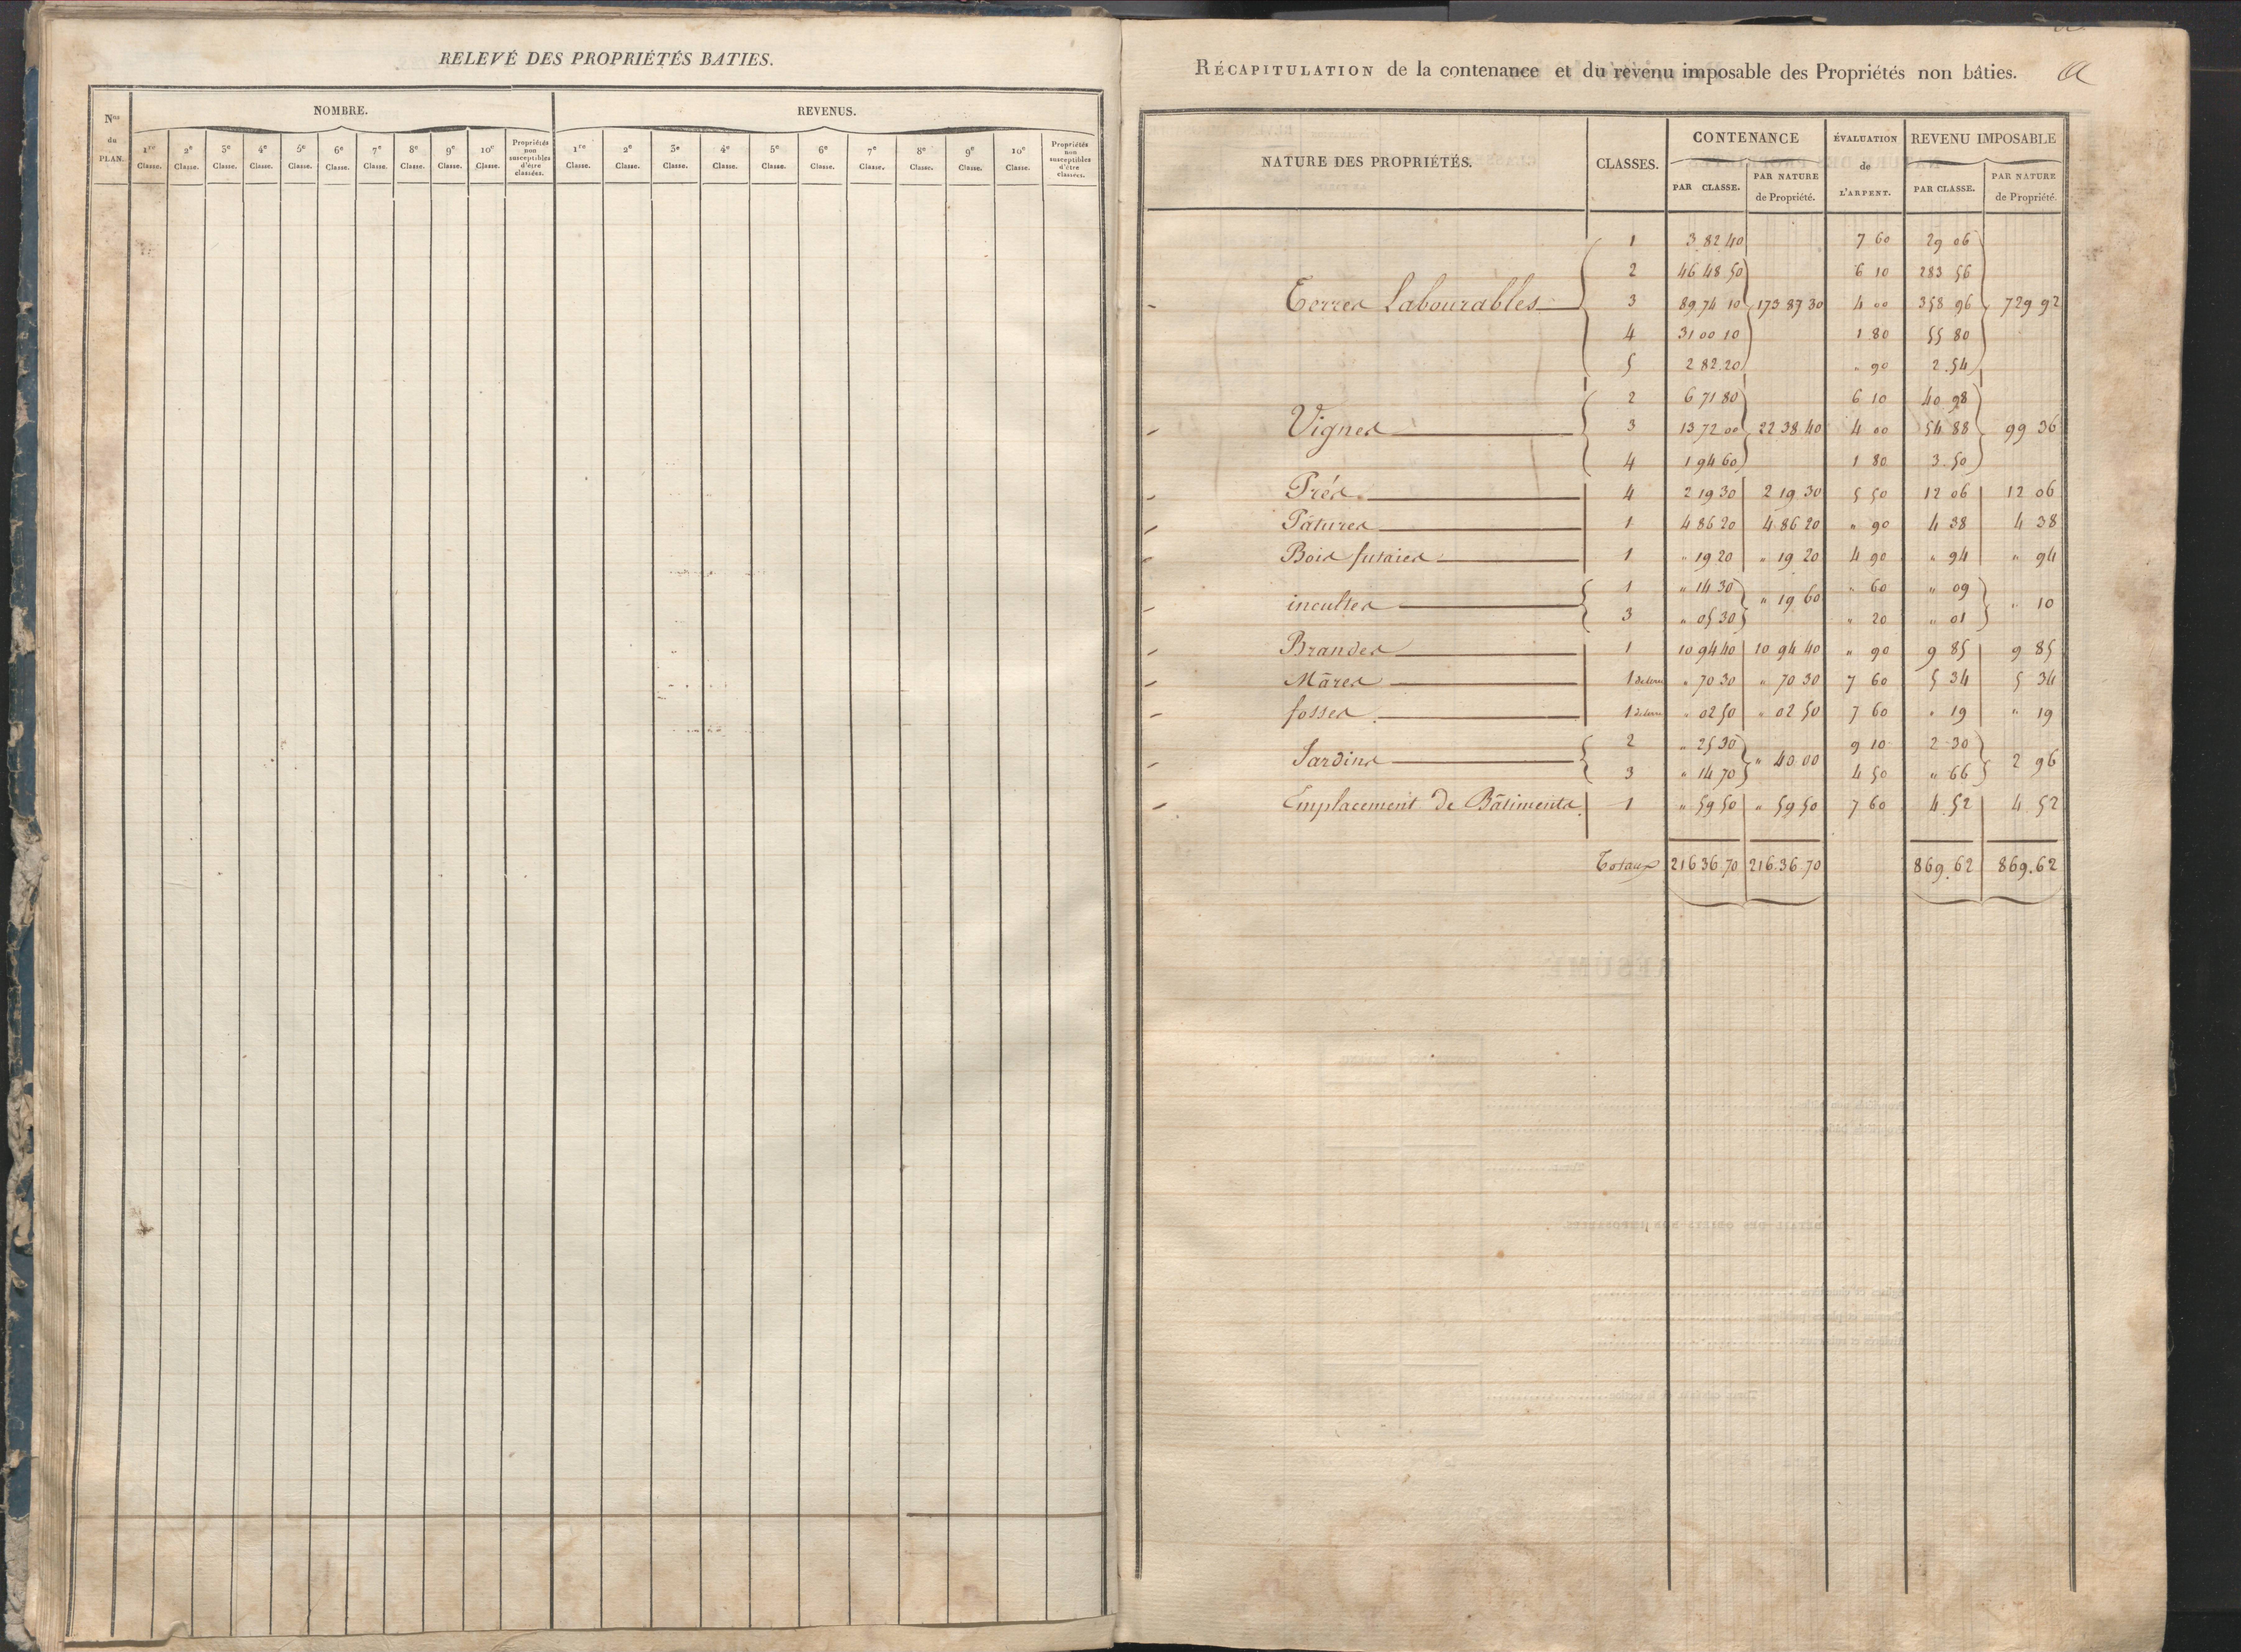 RELEVÉ DES PROPRIÉTÉS BATIES.
Nos du PLAN.
NOMBRE.
REVENUS.
1re Classe. 2e Classe. 3e Classe. 4e Classe. 5e Classe. 6e Classe. 7e Classe. 8e Classe. 9e Classe. 10e Classe. Propriétés non susceptibles d'être classées.
1re Classe. 2e Classe. 3e Classe. 4e Classe. 5e Classe. 6e Classe. 7e Classe. 8e Classe. 9e Classe. 10e Classe. Propriétés non susceptibles d'être classées.
RÉCAPITULATION de la contenance et du revenu imposable des Propriétés non bâties.
NATURE DES PROPRIÉTÉS. CLASSES. CONTENANCE ÉVALUATION de L'ARPENT. REVENU IMPOSABLE
PAR CLASSE. PAR NATURE de Propriété. PAR CLASSE. PAR NATURE de Propriété.
1 3 82 40 7 60 29 06
2 46 48 50 6 10 283 56
Terres Labourables 3 89 74 10 173 87 30 4 00 358 96 729 92
4 31 00 10 1 80 55 80
5 2 82 20 " 90 2 54
2 6 71 80 6 10 40 98
Vignes 3 13 72 00 22 38 40 4 00 54 88 99 36
4 1 94 60 1 80 3 50
Prés 4 2 19 30 2 19 30 5 50 12 06 12 06
Pâtures 1 4 86 20 4 86 20 " 90 4 38 4 38
Bois futaies 1 " 19 20 " 19 20 4 90 " 94 " 94
incultes 1 " 14 30 " 19 60 " 60 " 09 " 10
3 " 05 30 " 20 " 01
Brandes 1 10 94 40 10 94 40 " 90 9 85 9 85
Mares 1 de terre " 70 30 " 70 30 7 60 5 34 5 34
fosses 1 de terre " 02 50 " 02 50 7 60 " 19 " 19
2 " 25 30 9 10 2 30
Jardins " 40 00 2 96
3 " 14 70 4 50 " 66
Emplacement de Bâtiments 1 " 59 50 " 59 50 7 60 4 52 4 52
Totaux 216 36 70 216.36 70 869.62 869.62